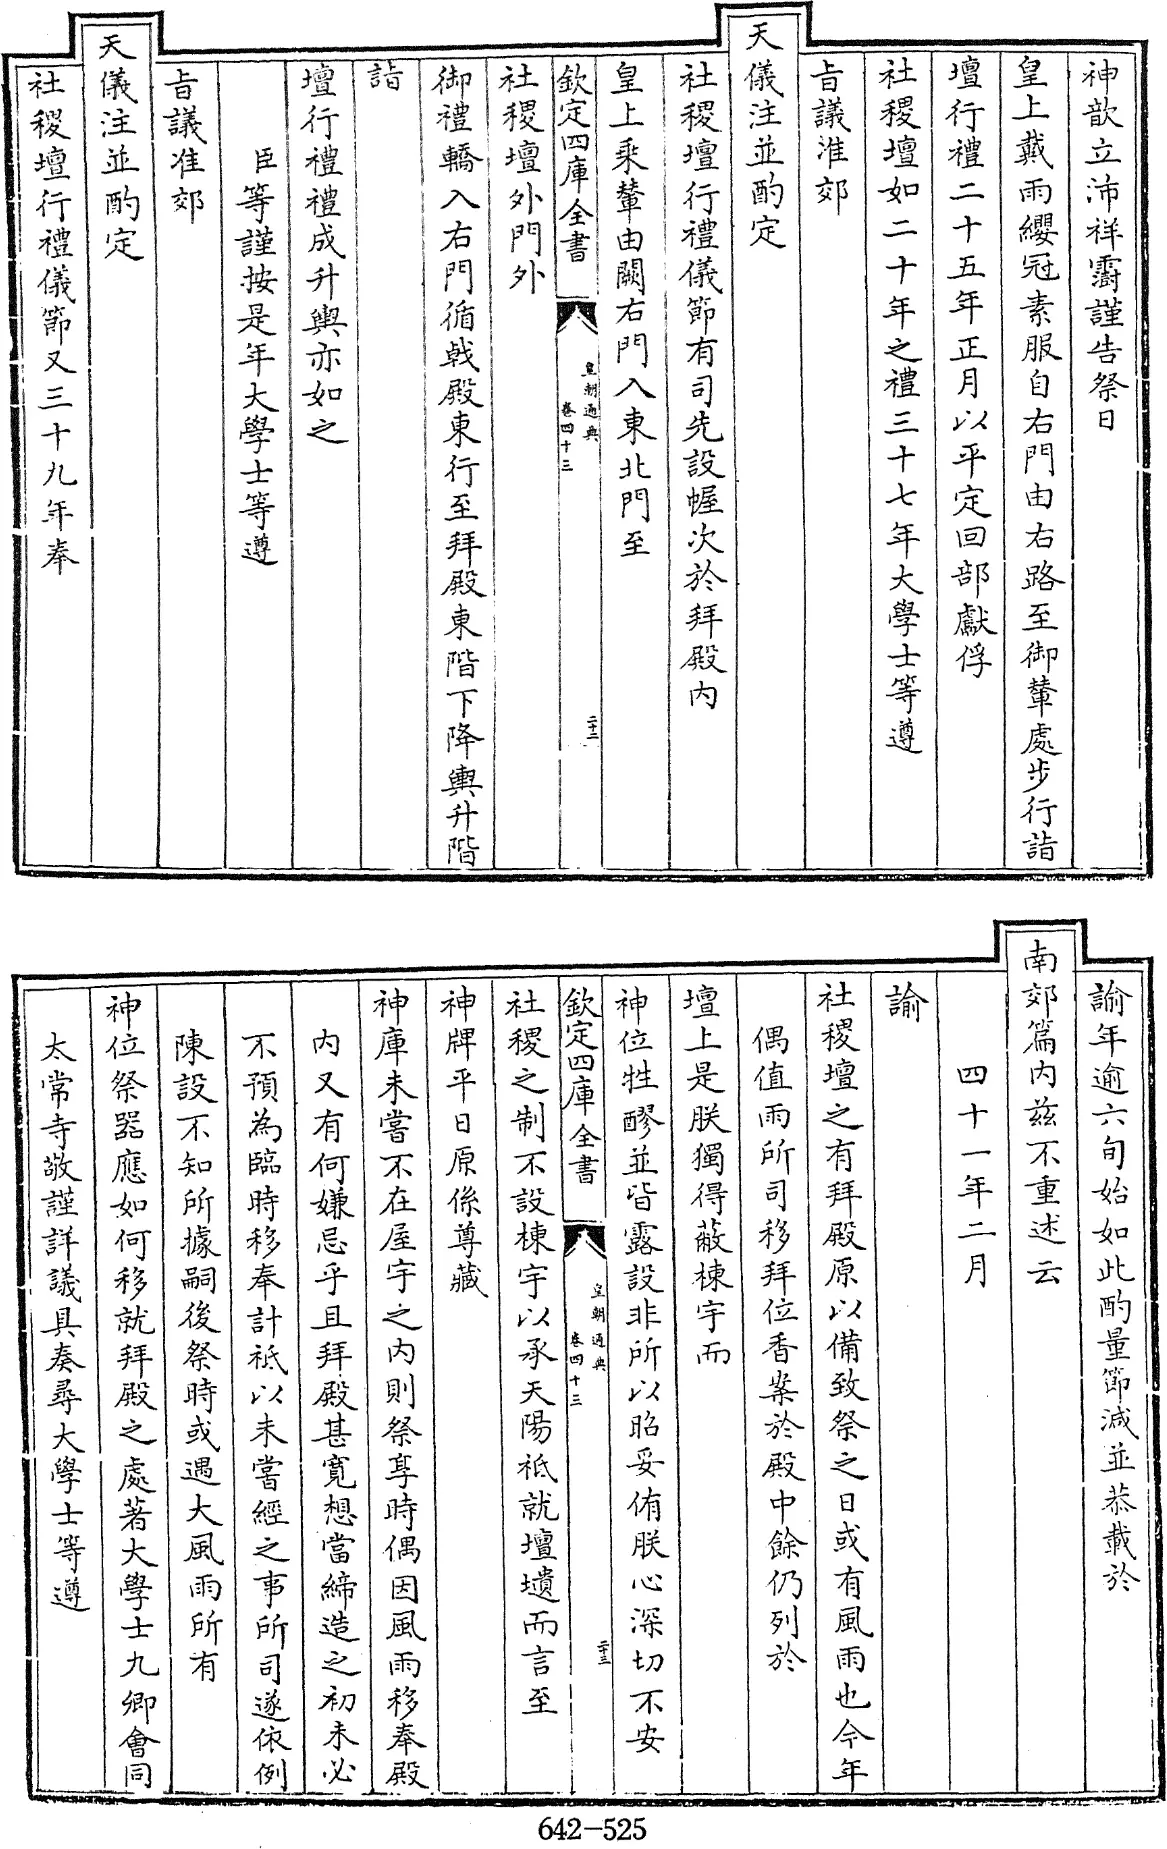 神歆立沛祥霨謹告祭日
皇上戴雨纓冠素服自右門由右路至御輦處步行詣
壇行禮二十五年正月以平定回部獻俘
社稷壇如二十年之禮三十七年大學士等遵
旨議准郊
天儀注並酌定
社稷壇行禮儀節有司先設幄次於拜殿内
皇上乘輦由闕右門入東北門至
欽定四庫全書
皇朝通典
卷四十三
二十二
社稷壇外門外
御禮轎入右門循戟殿東行至拜殿東階下降輿升階
詣
壇行禮禮成升輿亦如之
臣等謹按是年大學士等遵
旨議准郊
天儀注並酌定
社稷壇行禮儀節又三十九年奉
諭年逾六旬始如此酌量節減並恭載於
南郊篇内茲不重述云
四十一年二月
諭
社稷壇之有拜殿原以備致祭之日或有風雨也今年
偶值雨所司移拜位香案於殿中餘仍列於
壇上是朕獨得蔽棟宇而
神位牲醪並皆露設非所以昭妥侑朕心深切不安
欽定四庫全書
皇朝通典
卷四十三
二十三
社稷之制不設棟宇以承天陽祗就壇壝而言至
神牌平日原係尊藏
神庫未嘗不在屋宇之内則祭享時偶因風雨移奉殿
内又有何嫌忌乎且拜殿甚寛想當締造之初未必
不預為臨時移奉計祗以未嘗經之事所司遂依例
陳設不知所據嗣後祭時或遇大風雨所有
神位祭器應如何移就拜殿之處著大學士九卿會同
太常寺敬謹詳議具奏尋大學士等遵
642-525